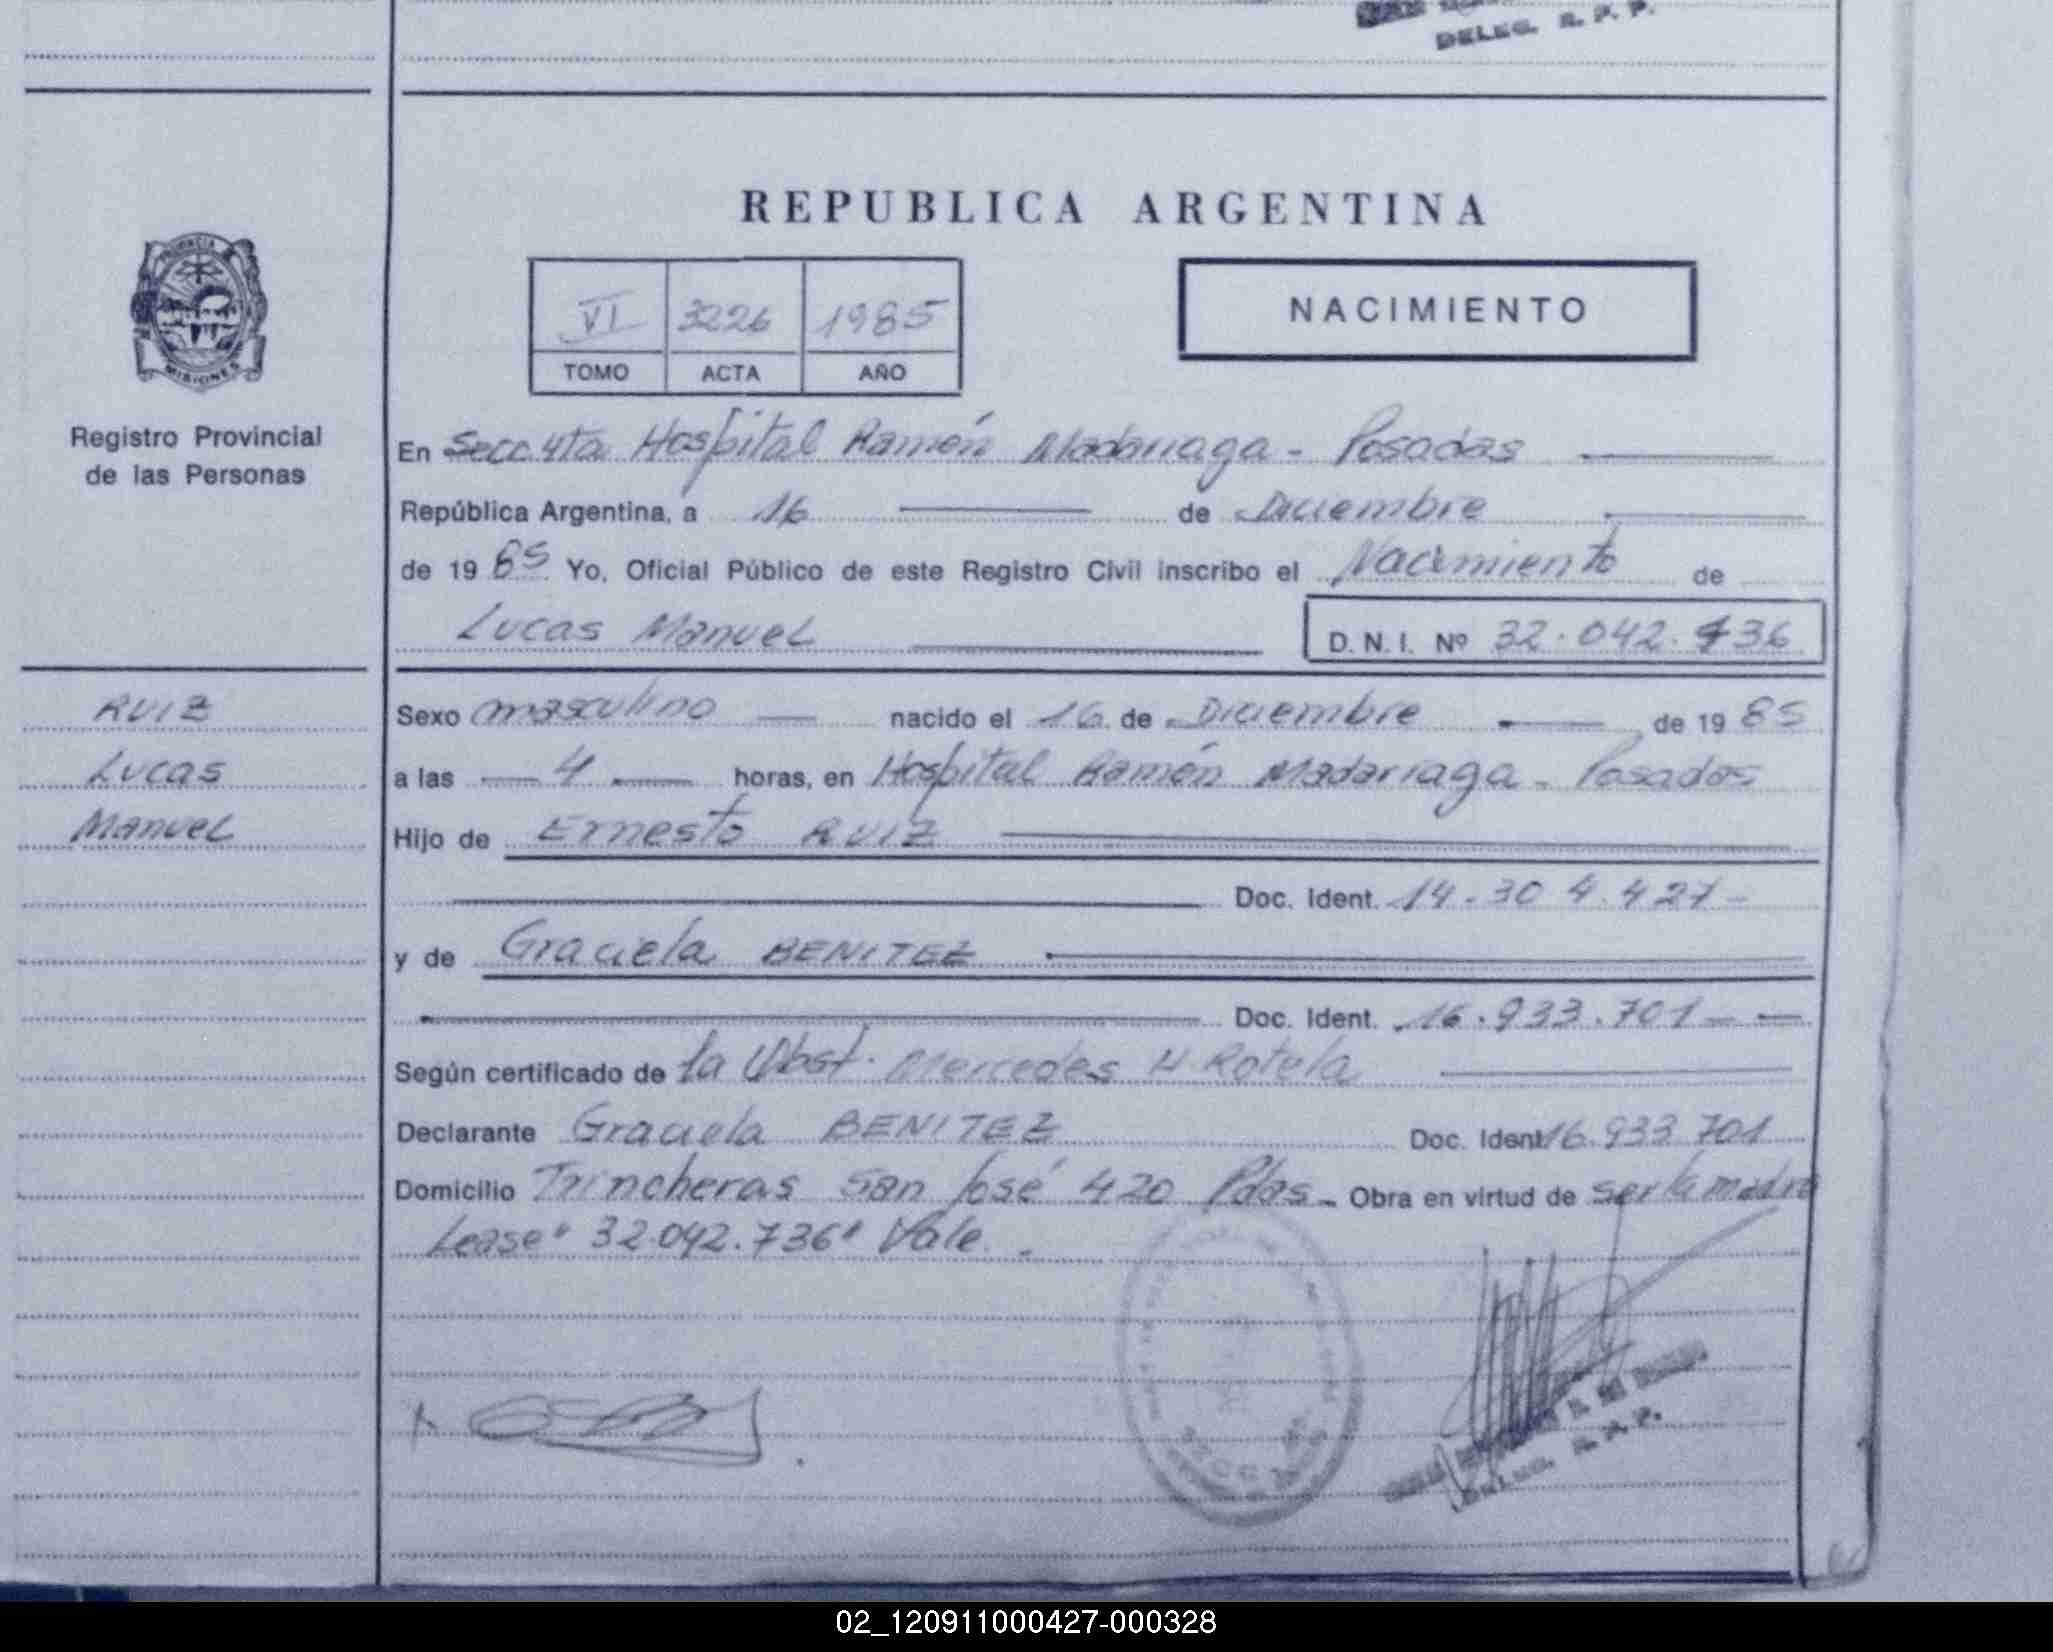 DELEG. R. P. P.
REPUBLICA ARGENTINA
PROVINCIA
MISIONES
VI 3226 1985
TOMO ACTA AÑO
NACIMIENTO
Registro Provincial
de las Personas
En Secc 4ta Hospital Ramón Madariaga - Posadas
República Argentina, a 16 de Diciembre
de 19 85 Yo, Oficial Público de este Registro Civil inscribo el Nacimiento de
Lucas Manuel D. N. I. Nº 32.042.736
RUIZ
Lucas
Manuel
Sexo masculino nacido el 16 de Diciembre de 19 85
a las 4 horas, en Hospital Ramón Madariaga - Posadas
Hijo de Ernesto RUIZ
Doc. Ident. 14.304.427-
y de Graciela BENITEZ
Doc. Ident. 16.933.701
Según certificado de la Obst. Mercedes H Rotela
Declarante Graciela BENITEZ Doc. Ident 16.933 701
Domicilio Trincheras San José 420 Pdas - Obra en virtud de ser la madre
Lease "32.042.736" Vale.
02_120911000427-000328